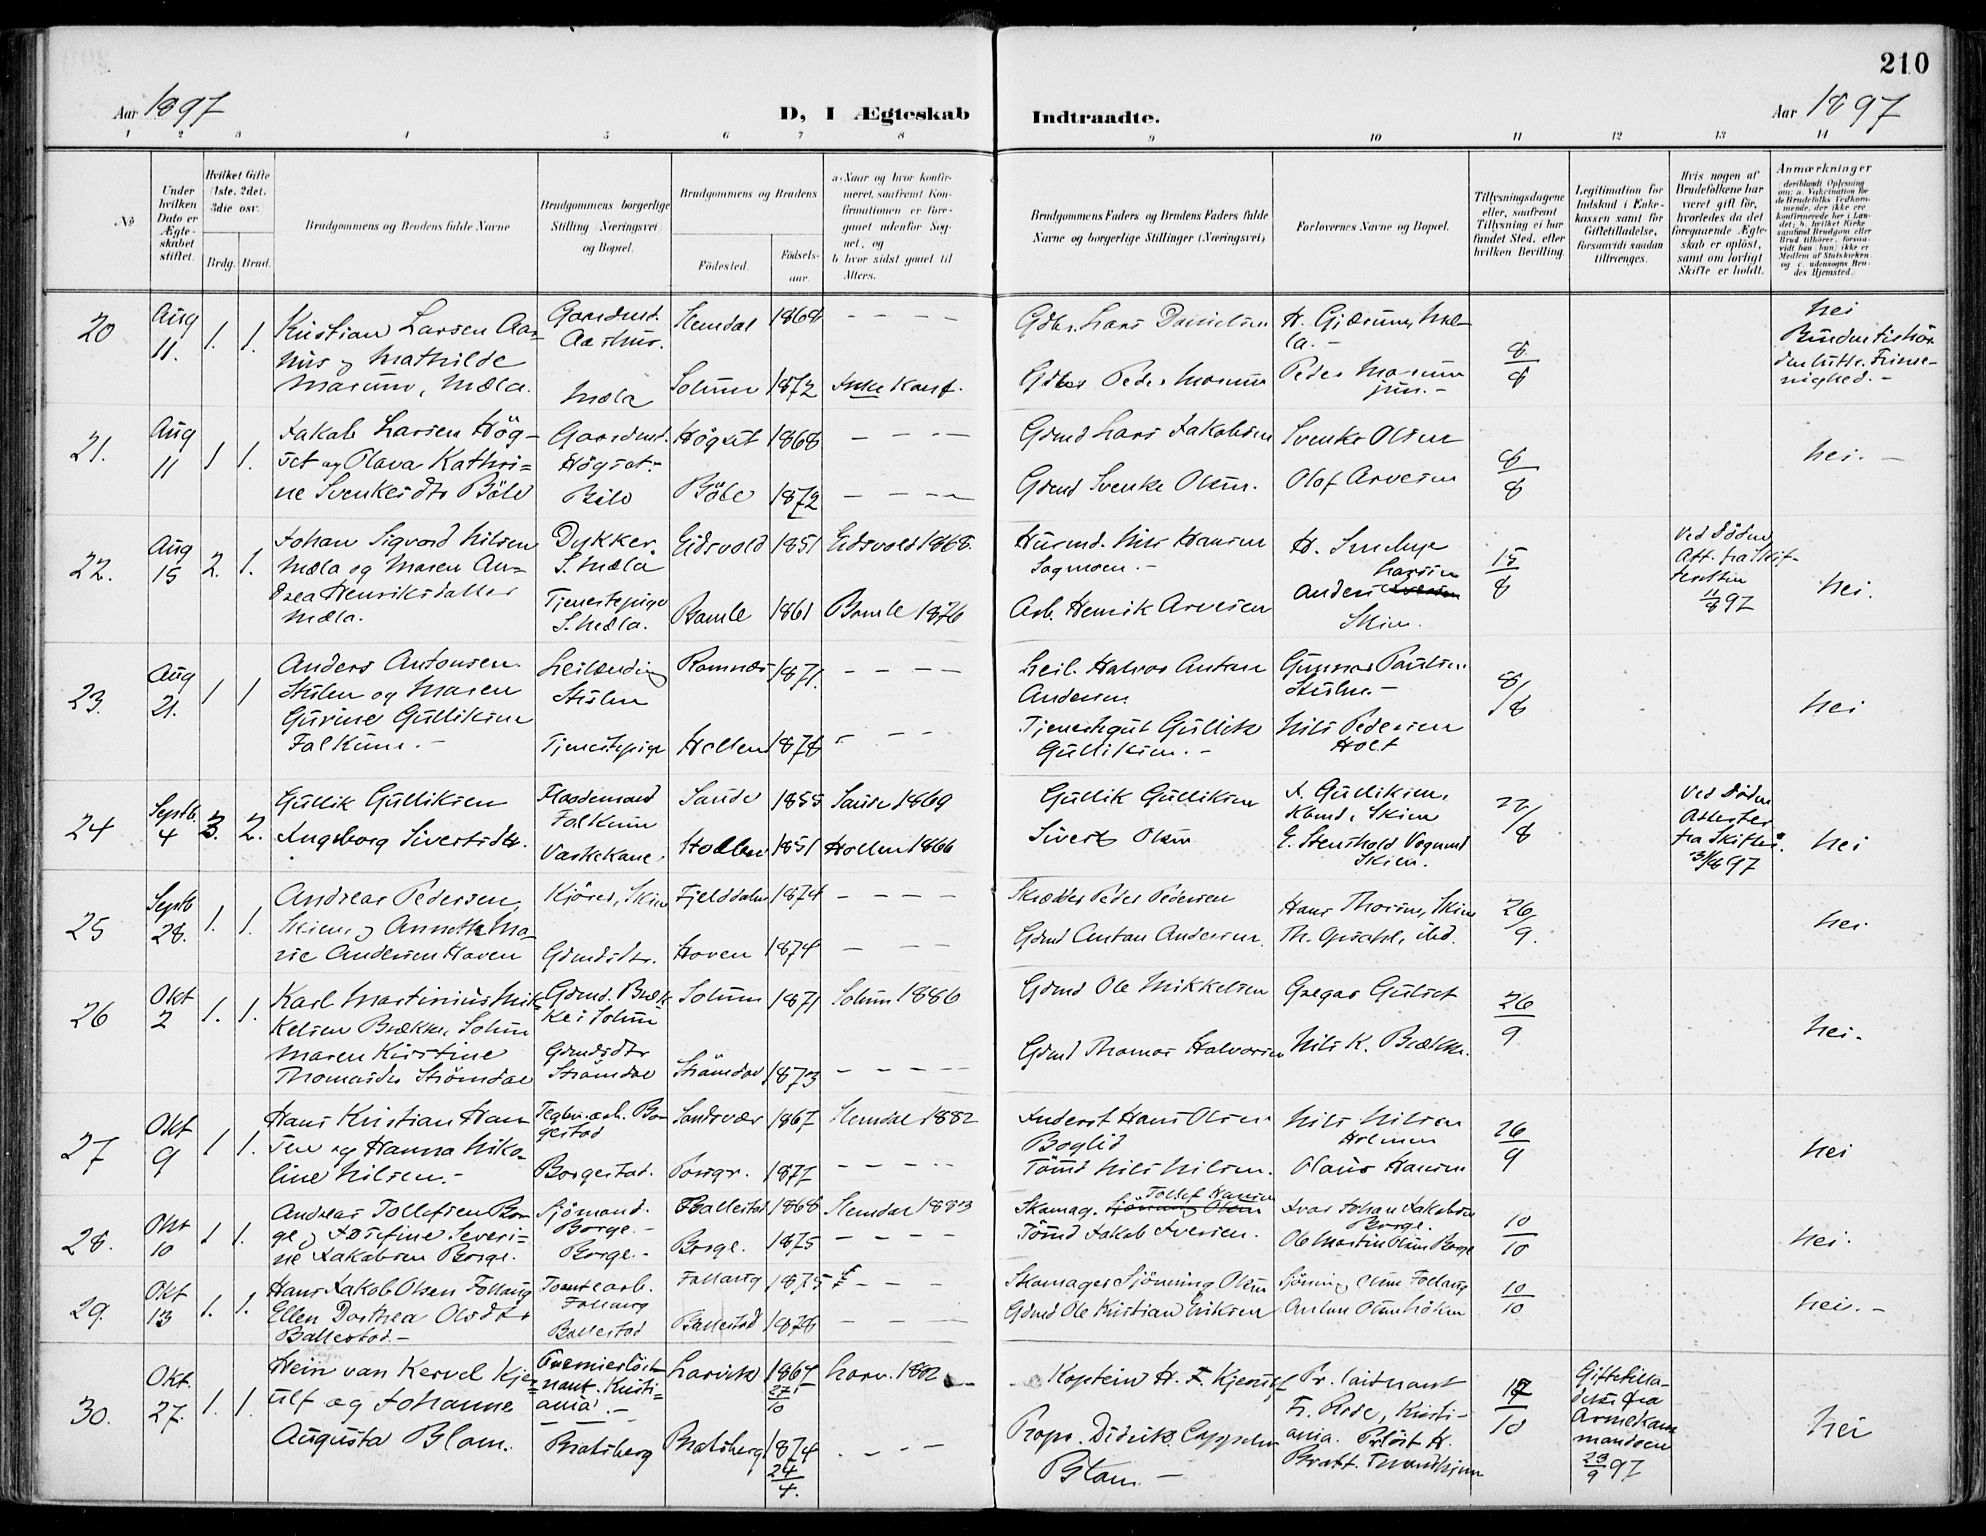 210
Aar 1897
D, I Ægteskab
Indtraadte.
Aar 1897
1 2 3 4 5 6 7 8 9 10 11 12 13 14
No
Under hvilken Dato er Ægteskabet stiftet.
Hvilket Gifte (1ste, 2det, 3die osv.
Brdg. Brud.
Brudgommens og Brudens fulde Navne
Brudgommens borgerlige Stilling (Næringsvei) og Bopæl.
Brudgommens og Brudens
Fødested. Fødselsaar.
a. Naar og hvor konfirmeret, saafremt Konfirmationen er foregaaet udenfor Sognet, og
b. hvor sidst gaaet til Alters.
Brudgommens Faders og Brudens Faders fulde Navne og borgerlige Stillinger (Næringsvei)
Forlovernes Navne og Bopæl.
Tillysningsdagene eller, saafremt Tillysning ei har fundet Sted, efter hvilken Bevilling.
Legitimation for Indskud i Enkekassen samt for Giftetilladelse, forsaavidt saadan tiltrænges.
Hvis nogen af Brudefolkene har været gift før, hvorledes da det foregaaende Ægteskab er opløst, samt om lovligt Skifte er holdt.
Anmærkninger
20 Aug 11. 1. 1.
Kristian Larsen Aarhus og Mathilde Marum, Mæla.
Gaardmd. Aarhus.
Mæla
Slemdal 1868 – – – –
Solum 1872 Ikke Konf.
Gdbr. Lars Danielsen
Gdbr Peder Marum
H. Gjærum, Mæla.-
Peder Marum jun.-
8/8
nei
21. Aug 11 1 1.
Jakob Larsen Högset og Olava Kathrine Svenkesdtr Böle
Gaardmd. Högset.-
Böle
Högset 1868 – – – –
Böle 1872 – – – –
Gdmd Lars Jakobsen
Gdmd Svenke Olsen.
Svenke Olsen
Olaf Arvesen
8/8
nei. –
22. Aug 15 2. 1.
Johan Sigvard Nilsen Mæla og Maren Andrea Henriksdatter Mæla.
Dykker. S. Mæla
Tjenestepige S. Mæla.
Eidsvold 1851 Eidsvold 1868.
Bamle 1861 Bamle 1876
Husmd. Nils Hansen Sagmoen.-
Arb. Henrik Arvesen
Anders Larsen Skien.
15/8
Ved Döden Att. fra Skifteretten 11/8 97
nei.
23. Aug 21. 1 1
Anders Antonsen Stulen og Maren Gurine Gulliksen Falkum.-
Leilænding Stulen
Tjenestepige
Ramnæs 1871. – – – –
Hollen 1878 – – –
Leil. Halvor Anton Andersen
Tjenestegut Gullik Gulliksen.-
Gunnar Paulsen Stulen.-
Nils Pedersen Holt
8/8
nei
24 Septb. 4 3. 2.
Gullik Gulliksen
Ingeborg Sivertsdtr.
Flaademand Falkum
Vaskekone
Sande 1855 Sande 1869
Hollen 1851 Hollen 1866
Gullik Gulliksen
Sivert Olsen
A. Gulliksen, Kbmd, Skien
E. Stenshold Vognmd Skien.
22/8
Ved Döden Attester fra Skifter. 31/8 97
nei
25 Septb 28. 1. 1.
Andreas Pedersen, Skien, og Annette Marie Andersen Haven
Kjörer, Skien
Gdmdsdtr.
Fjelddalen 1874 – – – –
Hoven 1874 – –
Skrædder Peder Pedersen
Gdmd Anton Andersen.
Hans Thorsen, Skien
26/9.
nei
26 Okt 2 1. 1.
Karl Martinius Mikkelsen Brække, Solum
Maren Kirstine Thomasdtr Strömdal
Gdmd. Brække i Solum
Gdmdsdtr Strömdal
Solum 1871 Solum 1886
Strömdal 1873 – – – –
Gdmd Ole Mikkelsen
Gdmd Thomas Halvorsen
Gregar Gulset
Nils K. Brække.
26/9
nei.
27 Okt 9 1 1.
Hans Kristian Hansen og Hanna Nikoline Nilsen.-
Teglv.arb. Borgestad
Borgestad.
Sandsvær 1867 Slemdal 1882
Porsgr. 1877 – – – –
Inderst Hans Olsen Boglid
Tömd Nils Nilsen.
Nils Nilsen Holmen
Olaus Hansen
26/9
nei
28. Okt 10 1 1.
Andreas Tollefsen Borge og Josefine Severine Jakobsen Borge.
Sjömand. Borge.-
Borge.-
Ballestad 1868 Slemdal 1883
Borge. 1875 – – – –
Skomag. Tollef Hansen
Tömd Jakob Iversen.
Ivar Johan Jakobsen Borge.
Ole Martin Olsen Borge
10/10
nei.
29. Okt 13 1. 1.
Hans Jakob Olsen Follaug
Ellen Dorthea Olsdtr Ballestad.-
Tomtearb. Follaug
Ballestad
Follaug 1875 – – –
Ballestad 1876 – – – –
Skomager Sjönning Olsen
Gdmd Ole Kristian Eriksen
Sjönning Olsen Follaug
10/10
nei. –
30. Okt. 27. 1. 1.
Hein van Kervel Kjerulf og Johanne Augusta Blom.
Premierlöitnant. Kristiania.-
Bratsberg
Larvik 1867 27/10 Larv. 1882
Bratsberg 1874 24/4. – –
Kaptein H. F. Kjerulf
Propr. Diderik Cappelen Blom –
Pr. Laitnant Fr. Rode, Kristiania. Prlöit H. Bratt. Trondhjem
17/10
Giftetilladelse fra Armekommandoen 23/9 97
nei